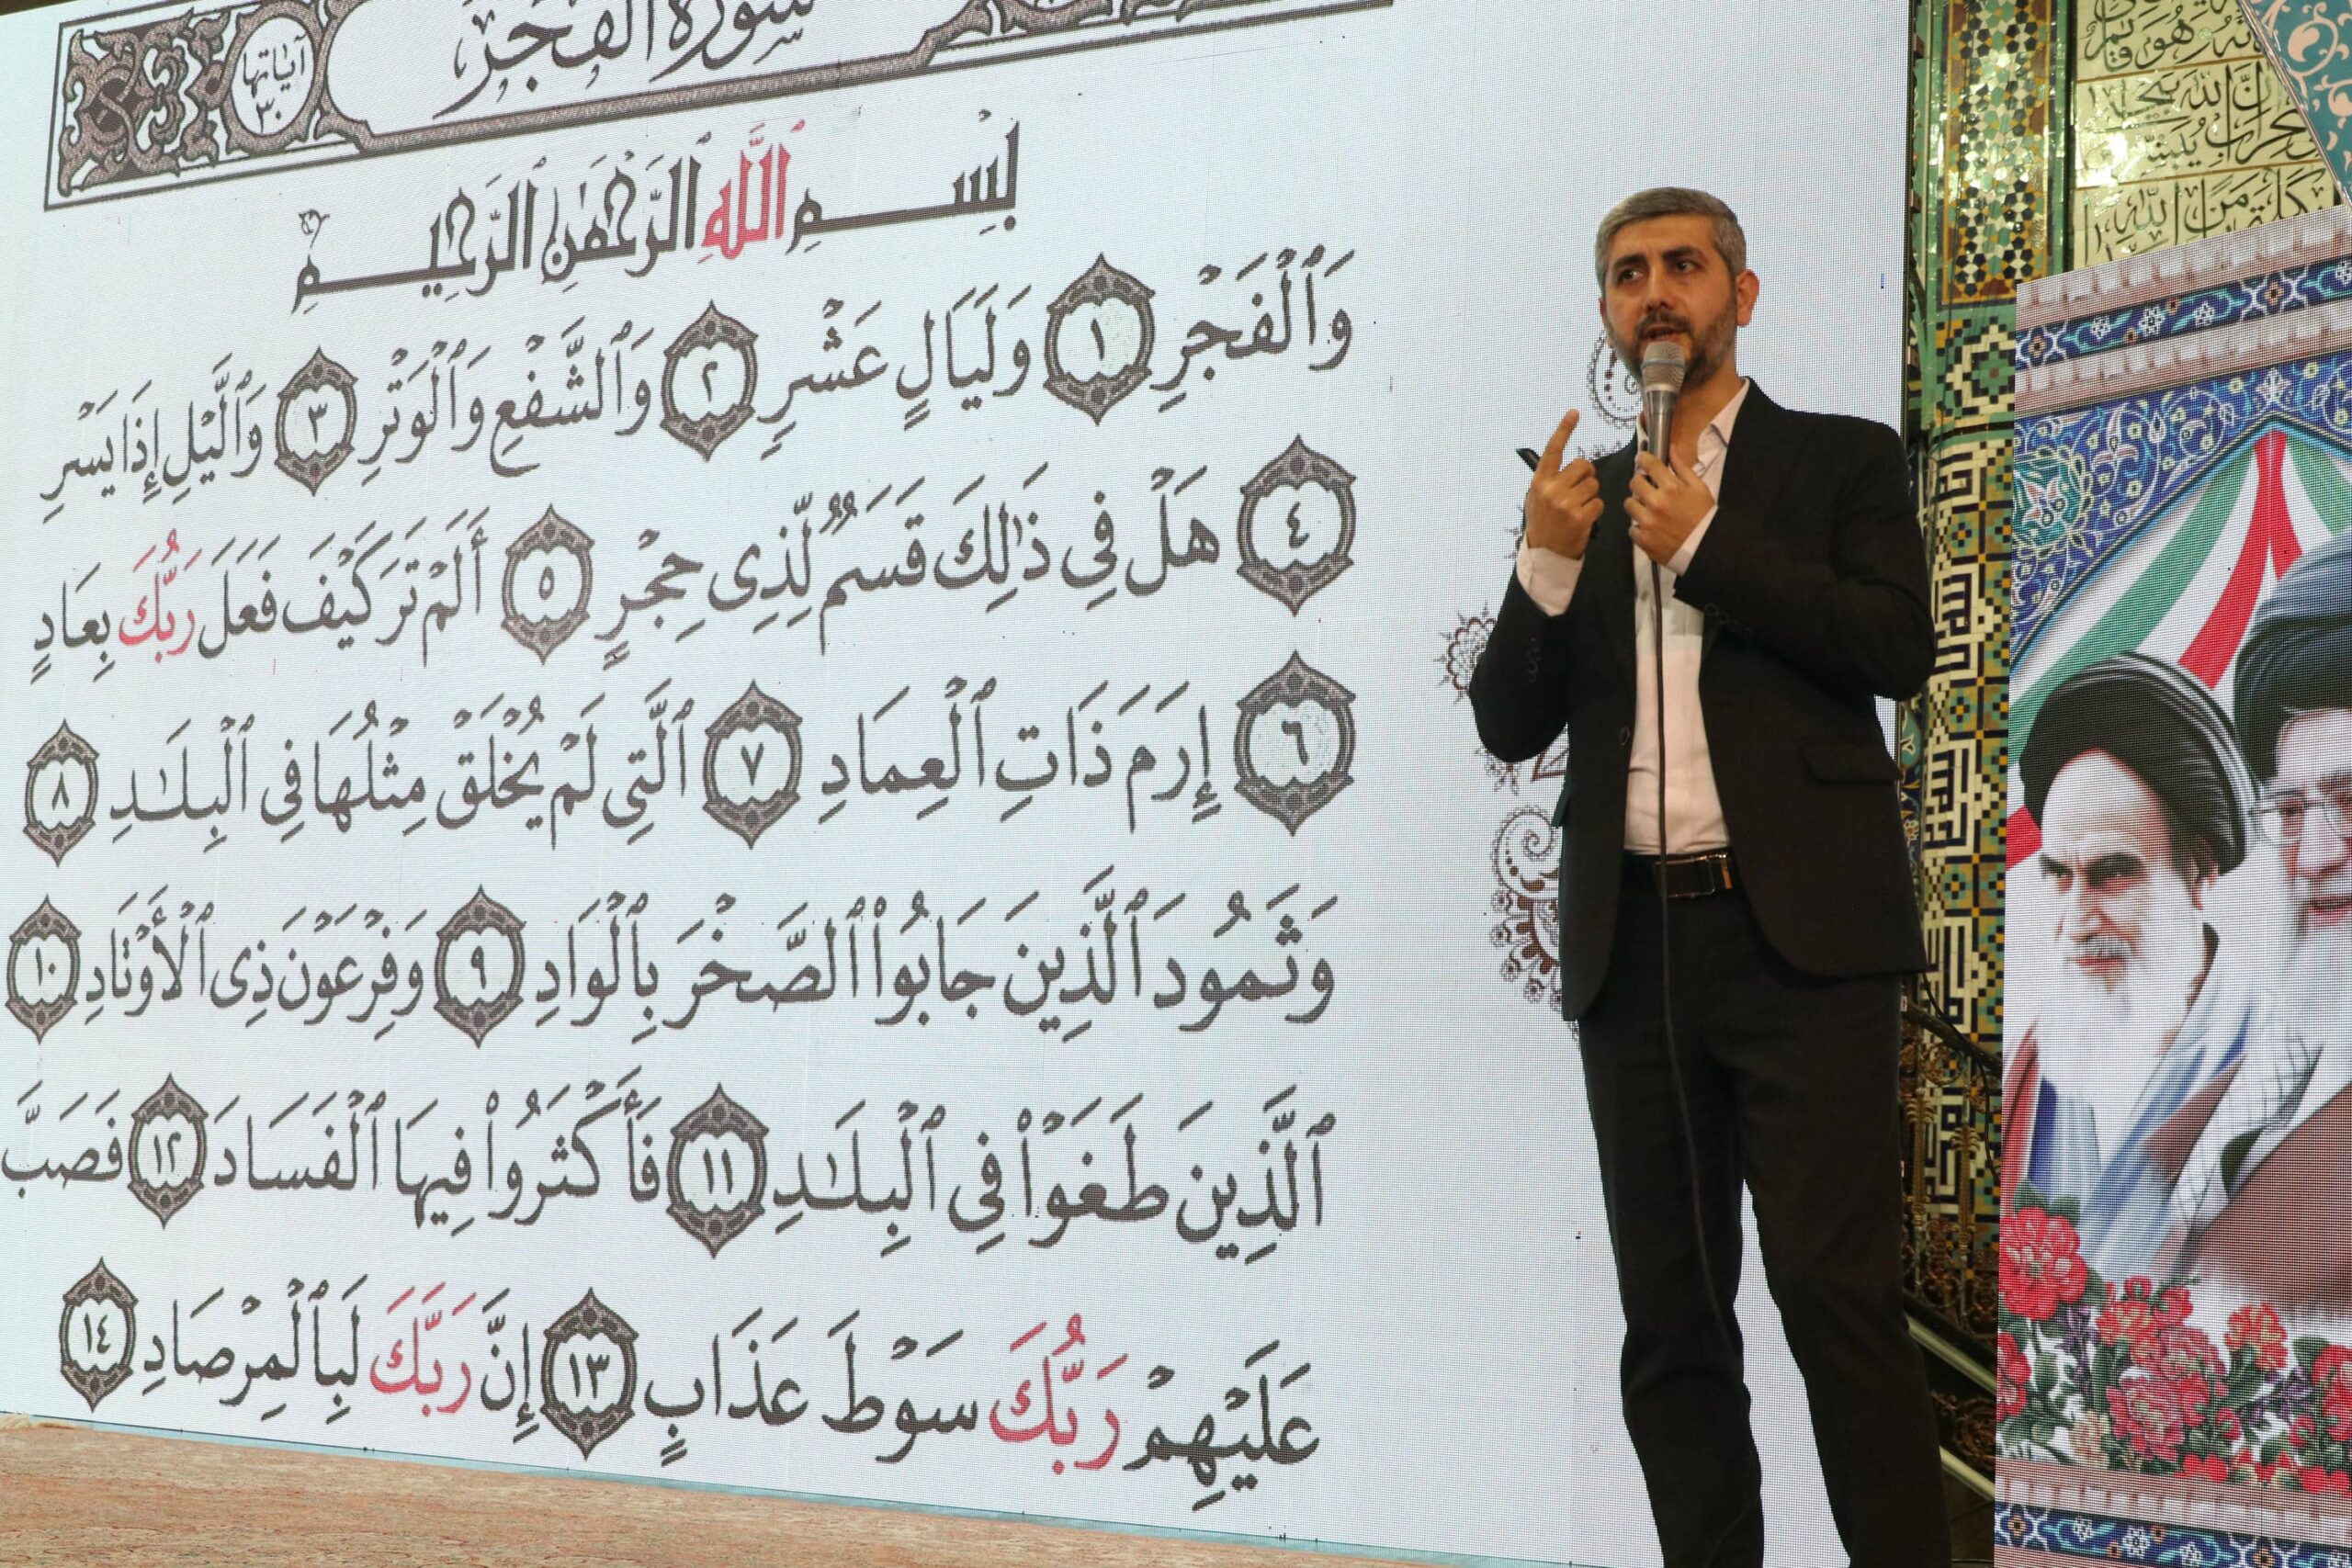 سورة الفجر
آياتها ٣٠
بِسْمِ ٱللَّهِ ٱلرَّحْمَٰنِ ٱلرَّحِيمِ
وَٱلْفَجْرِ ١ وَلَيَالٍ عَشْرٍ ٢ وَٱلشَّفْعِ وَٱلْوَتْرِ ٣ وَٱلَّيْلِ إِذَا يَسْرِ
٤ هَلْ فِى ذَٰلِكَ قَسَمٌ لِّذِى حِجْرٍ ٥ أَلَمْ تَرَ كَيْفَ فَعَلَ رَبُّكَ بِعَادٍ
٦ إِرَمَ ذَاتِ ٱلْعِمَادِ ٧ ٱلَّتِى لَمْ يُخْلَقْ مِثْلُهَا فِى ٱلْبِلَٰدِ ٨
وَثَمُودَ ٱلَّذِينَ جَابُوا۟ ٱلصَّخْرَ بِٱلْوَادِ ٩ وَفِرْعَوْنَ ذِى ٱلْأَوْتَادِ ١٠
ٱلَّذِينَ طَغَوْا۟ فِى ٱلْبِلَٰدِ ١١ فَأَكْثَرُوا۟ فِيهَا ٱلْفَسَادَ ١٢ فَصَبَّ
عَلَيْهِمْ رَبُّكَ سَوْطَ عَذَابٍ ١٣ إِنَّ رَبَّكَ لَبِٱلْمِرْصَادِ ١٤